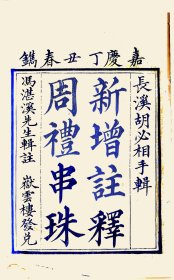 嘉慶丁丑春鐫
長溪胡必相手輯
新增註釋
周禮串珠
馮湛溪先生輯註
嶽雲樓發兌